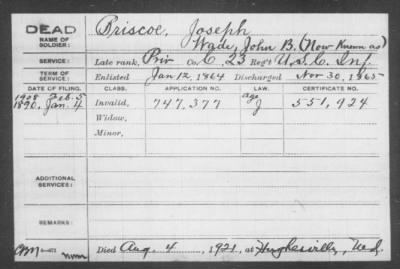 DEAD Briscoe, Joseph
NAME OF SOLDIER: Wade, John B. (Now Known as)
SERVICE: Late rank, Priv Co. C, 23 Reg't U.S.C. Inf.
TERM OF SERVICE: Enlisted Jan 12, 1864 Discharged Nov 30, 1865
DATE OF FILING. CLASS. APPLICATION NO. LAW. CERTIFICATE NO.
1908 Feb. 5 age
1890, Jan. 4 Invalid, 747,377 J 551,924
Widow,
Minor,
ADDITIONAL SERVICES:
REMARKS:
Died Aug. 4, 1921, at Hughesville, Md.